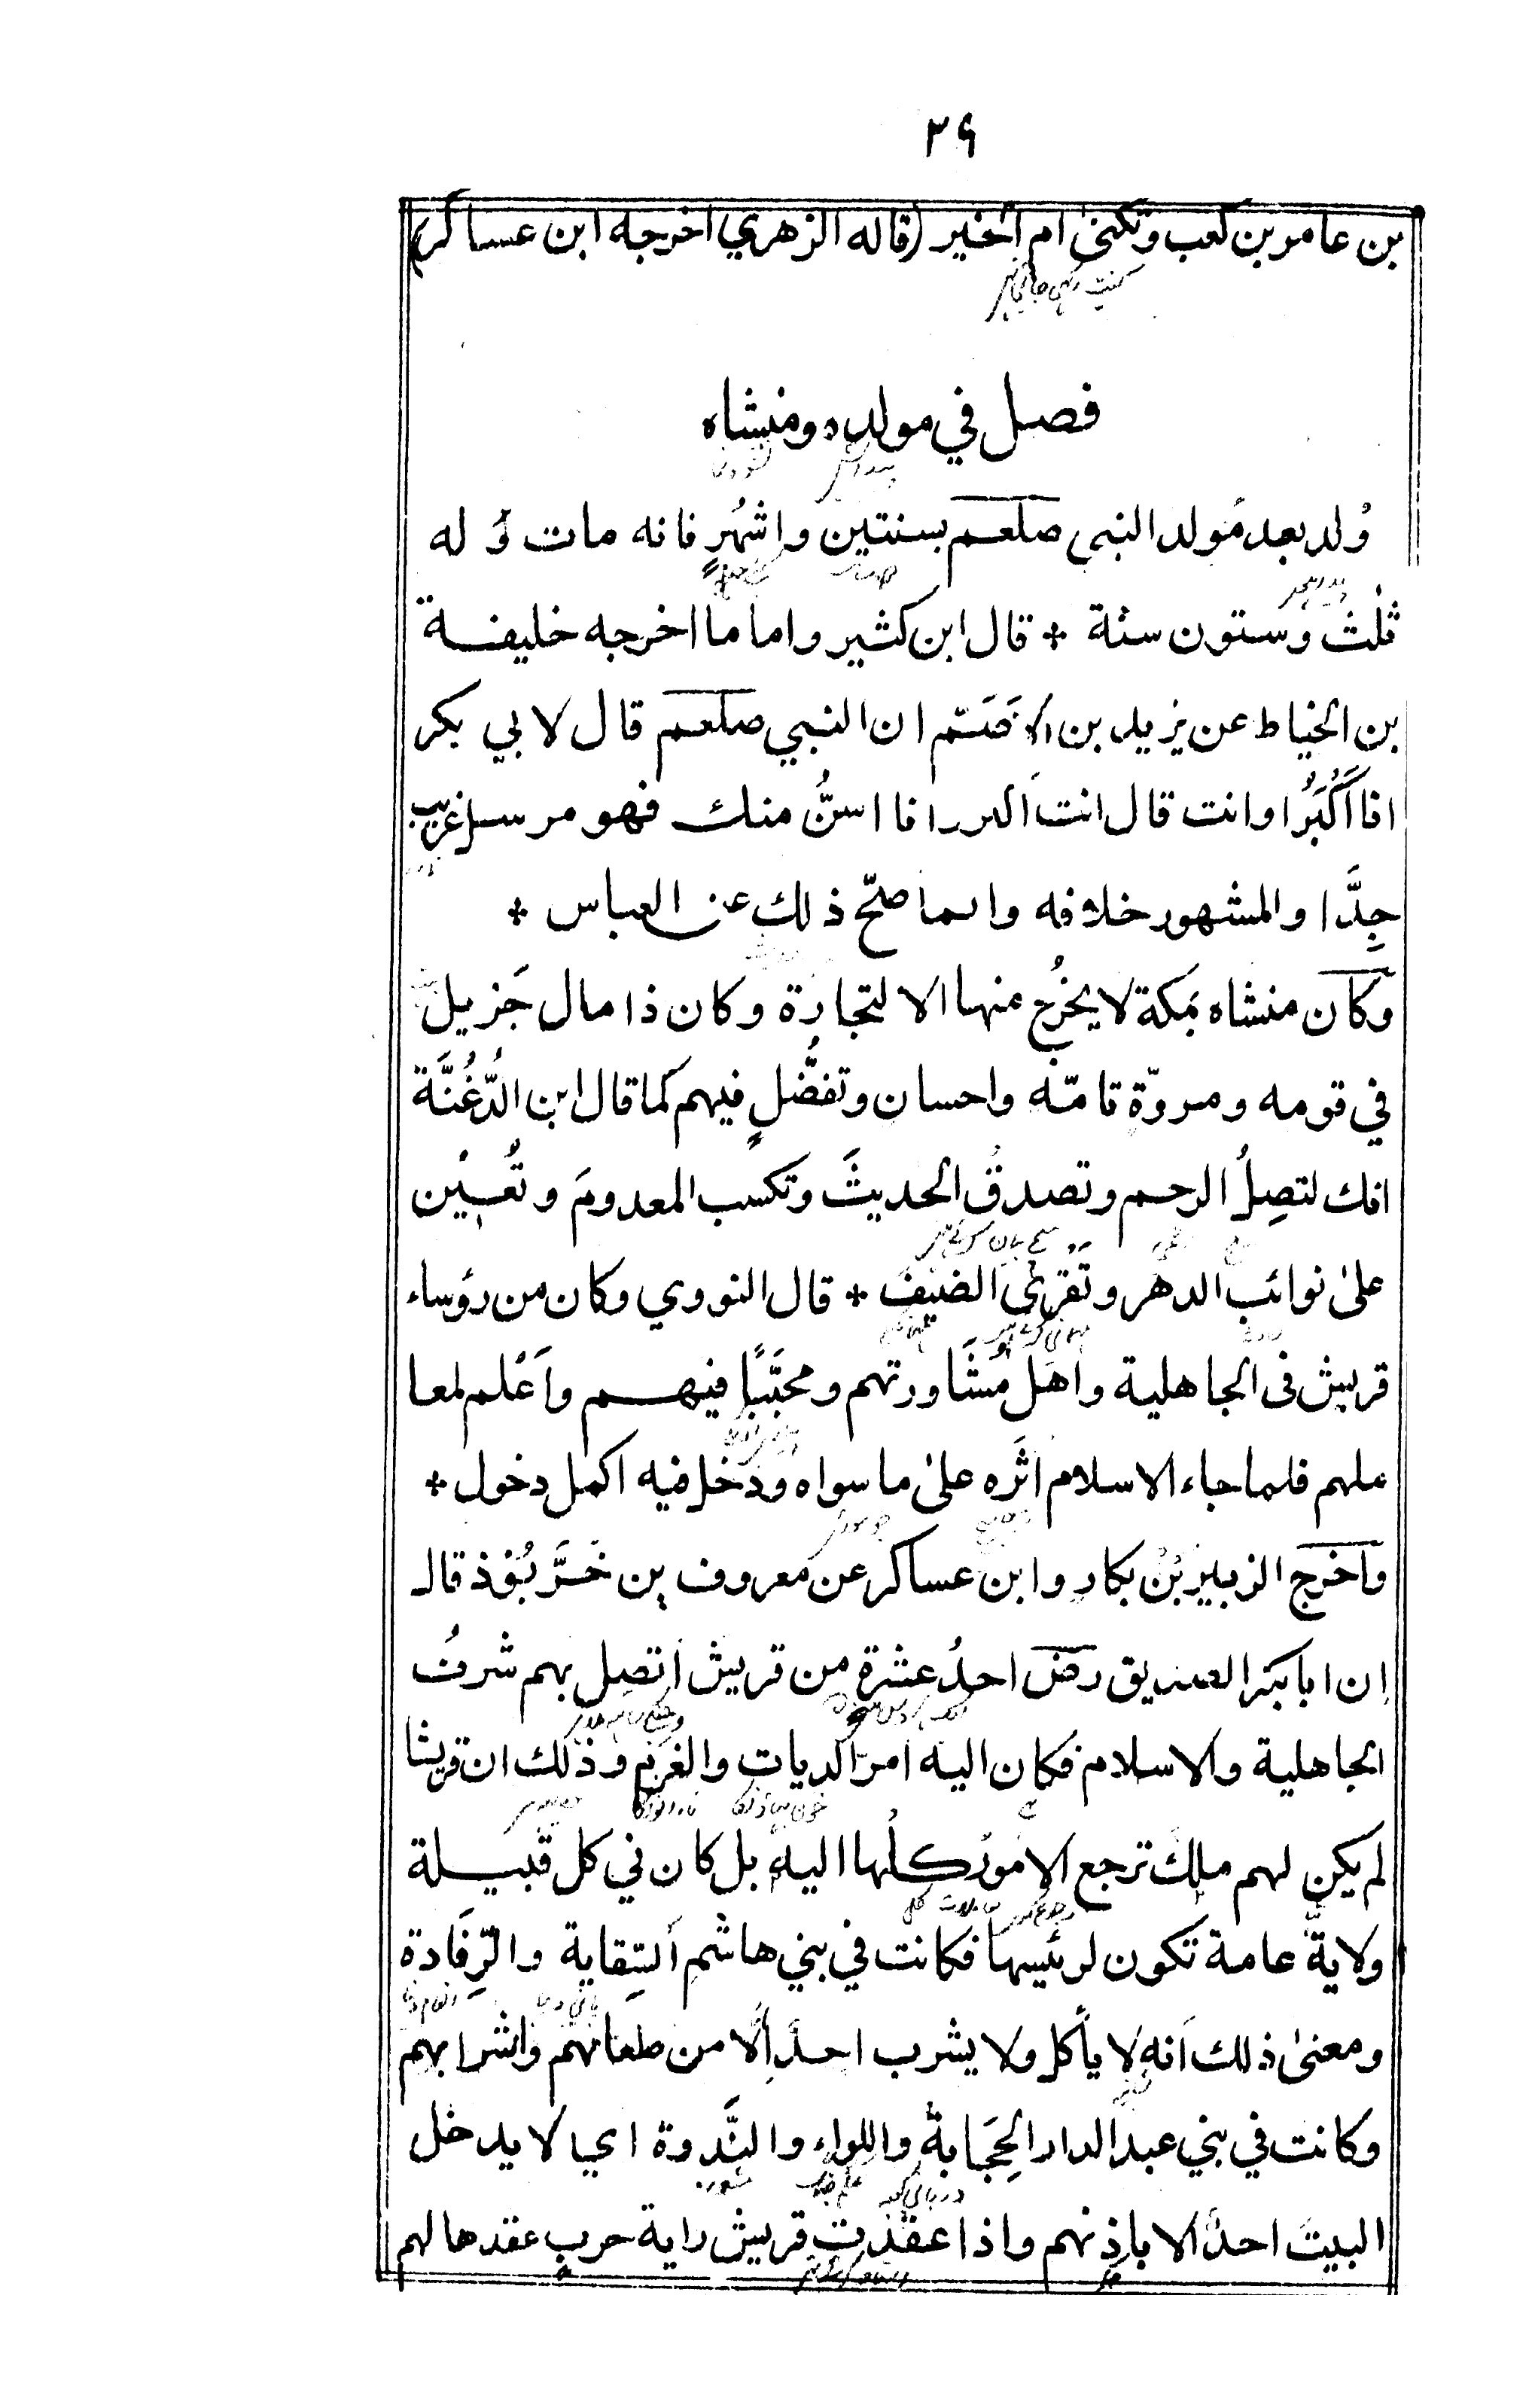 ٣٦
بن عامر بن كعب وتكنىٰ ام الخير (قاله الزهري اخرجه ابن عساكر)
فصل في مولده ومنشاه
وُلد بعد مَولد النبي صلعم بسنتين واشهُرٍ فانه مات وَ له
ثلٰث وستون سنة * قال ابن كثير واما ما اخرجه خليفة
بن الخياط عن يزيد بن الاَصَمّ ان النبي صلعم قال لابي بكر
انا اَكْبَرُ او انت قال انت اكبر وانا اسنُّ منك فهو مرسل غريب
جِدَّا والمشهور خلافه وانما صحّ ذلك عن العباس *
وكان منشاه بمكة لا يخرُج منها الا لتجارة وكان ذا مال جَزيل
في قومه ومروّة تامّة واحسان وتفضُّلٍ فيهم كما قال ابن الدُّغُنَّة
انك لتصِلُ الرحم وتصدقُ الحديثَ وتكسب المعدومَ وتُعِيْن
علىٰ نوائب الدهر وتَقْرِىْ الضيفَ * قال النووي وكان من رؤساء
قريش فى الجاهلية واهل مُشَاورتهم ومحبَّبًا فيهم واَعْلم لمعا
ملهم فلما جاء الاسلام اٰثَره علىٰ ما سواه ودخل فيه اكمل دخول *
واخرج الزبير بْن بكار وابن عساكر عن معروف بن خَرَّبُوْذ قال
ان ابا بكر الصديق رض احدُ عشرة من قريش اتصل بهم شرفُ
الجاهلية والاسلام فكان اليه امر الديات والغُرْم وذلك ان قريشا
لم يكن لهم ملِك ترجع الامورُ كلُها اليه بل كان في كل قبيلة
ولايةٌ عامة تكون لرئيسها فكانت في بني هاشم السِّقاية والرِّفَادة
ومعنىٰ ذلك انه لا يأكل ولا يشرب احدٌ اِلّا من طعامهم وشرابهم
وكانت في بني عبد الدار الحِجَابةُ واللواء والنَّدوة اي لا يدخل
البيتَ احدٌ الا باِذنهم واذا عقدت قريش راية حربٍ عقدها لهم